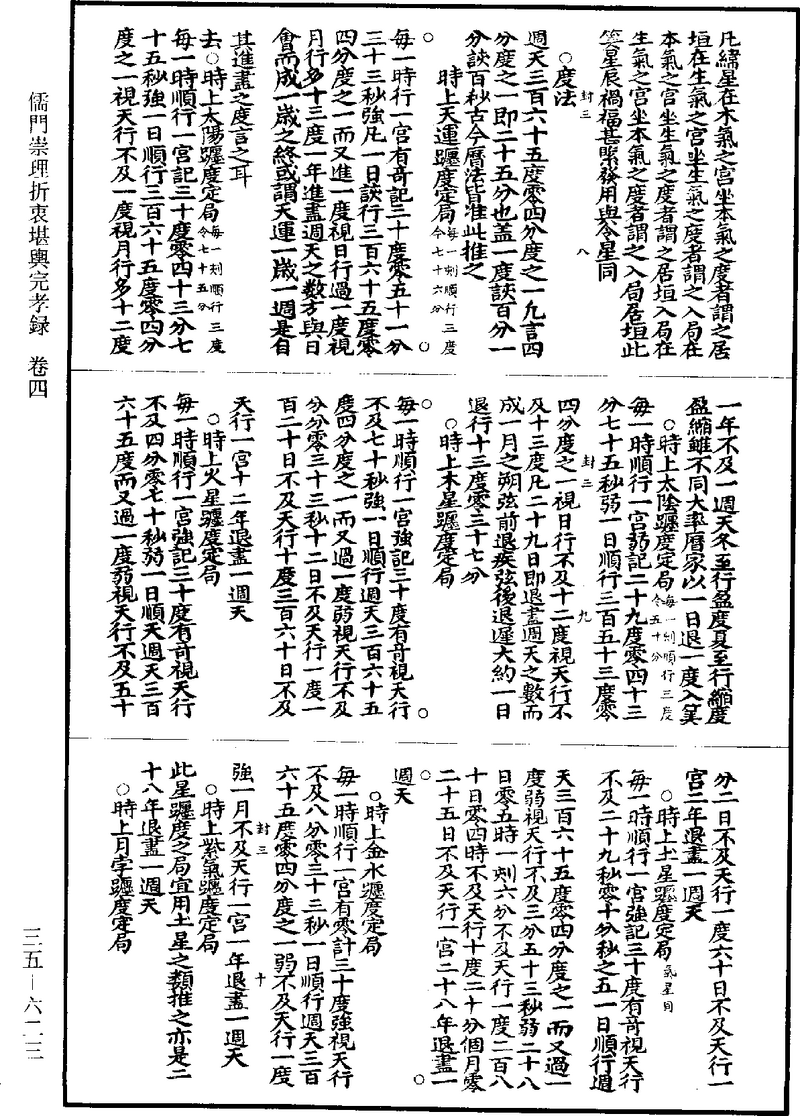 凡緯星在本氣之宮坐本氣之度者謂之居
垣在生氣之宮坐生氣之度者謂之入局在
本氣之宮坐生氣之度者謂之居垣入局在
生氣之宮坐本氣之度者謂之入局居垣此
等星辰禍福甚緊發用與令星同
封三 八
○度法
週天三百六十五度零四分度之一凡言四
分度之一即二十五分也盖一度該百分一
分該百秒古今曆法皆准此推之
時上天運躔度定局每一刻順行三度令七十六分
○ ○
每一時行一宮有奇記三十度零五十一分
三十三秒強凡一日該行三百六十五度零
四分度之一而又進一度視日行過一度視
月行多十三度一年進盡週天之數方與日
會而成一歲之終或謂天運一歲一週是自
其進盡之度言之耳
去○時上太陽躔度定局每一刻順行三度令七十五分
每一時順行一宮記三十度零四十三分七
十五秒強一日順行三百六十五度零四分
度之一視天行不及一度視月行多十二度
一年不及一週天冬至行盈度夏至行縮度
盈縮雖不同大率曆家以一日退一度入筭
○時上太陰躔度定局每一刻順行三度令五十分
每一時順行一宮弱記二十九度零四十三
分七十五秒弱一日順行三百五十三度零
封三 九
四分度之一視日行不及十二度視天行不
及十三度凡二十九日即退盡週天之數而
成一月之朔弦前退疾弦後退遲大約一日
退行十三度零三十七分
○時上木星躔度定局
○ ○
每一時順行一宮強記三十度有奇視天行
不及七十秒強一日順行週天三百六十五
度四分度之一而又過一度弱視天行不及
分分零三十三秒十二日不及天行一度一
百二十日不及天行十度三百六十日不及
天行一宮十二年退盡一週天
○時上火星躔度定局
每一時順行一宮強記三十度有奇視天行
不及四分零七十秒弱一日順天週天三百
六十五度而又過一度弱視天行不及五十
分二日不及天行一度六十日不及天行一
宮二年退盡一週天
○時上土星躔度定局氣星同
每一時順行一宮強記三十度有奇視天行
不及二十九秒零十分秒之五一日順行週
天三百六十五度零四分度之一而又過一
度弱視天行不及三分五十三秒弱二十八
日零五時一刻六分不及天行一度二百八
十日零四時不及天行十度二十分個月零
二十五日不及天行一宮二十八年退盡一
○ ○
週天
○時上金水躔度定局
每一時順行一宮有零計三十度強視天行
不及八分零三十三秒一日順行週天三百
六十五度零四分度之一弱不及天行一度
封三 十
強一月不及天行一宮一年退盡一週天
○時上紫氣躔度定局
此星躔度之局宜用土星之類推之亦是二
十八年退盡一週天
○時上月孛躔度定局
儒門崇理折衷堪輿完孝録 卷四
三五—六二三